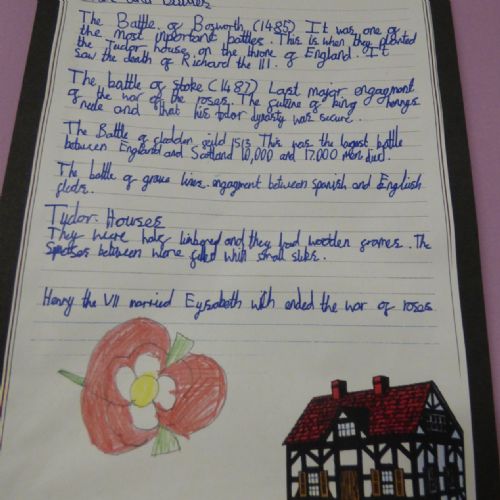 The Battle of Bosworth (1485) It was one of
the most important battles. This is when they planted
the Tudor house on the throne of England. It
saw the death of Richard the III.
The battle of stoke (1487) Last major engagment
of the war of the roses. The future of king henrys
rule and that his tudor dynasty was secure.
The Battle of flodden 1513 This was the largest battle
between England and Scotland 10,000 and 17000 men died.
The battle of grave lines. engagment between spanish and English
fleds.
Tudor Houses
They were half timbered and they had wooden frames. The
between were filled whith small
Henry the VII married Eylsabeth with ended the war of roses